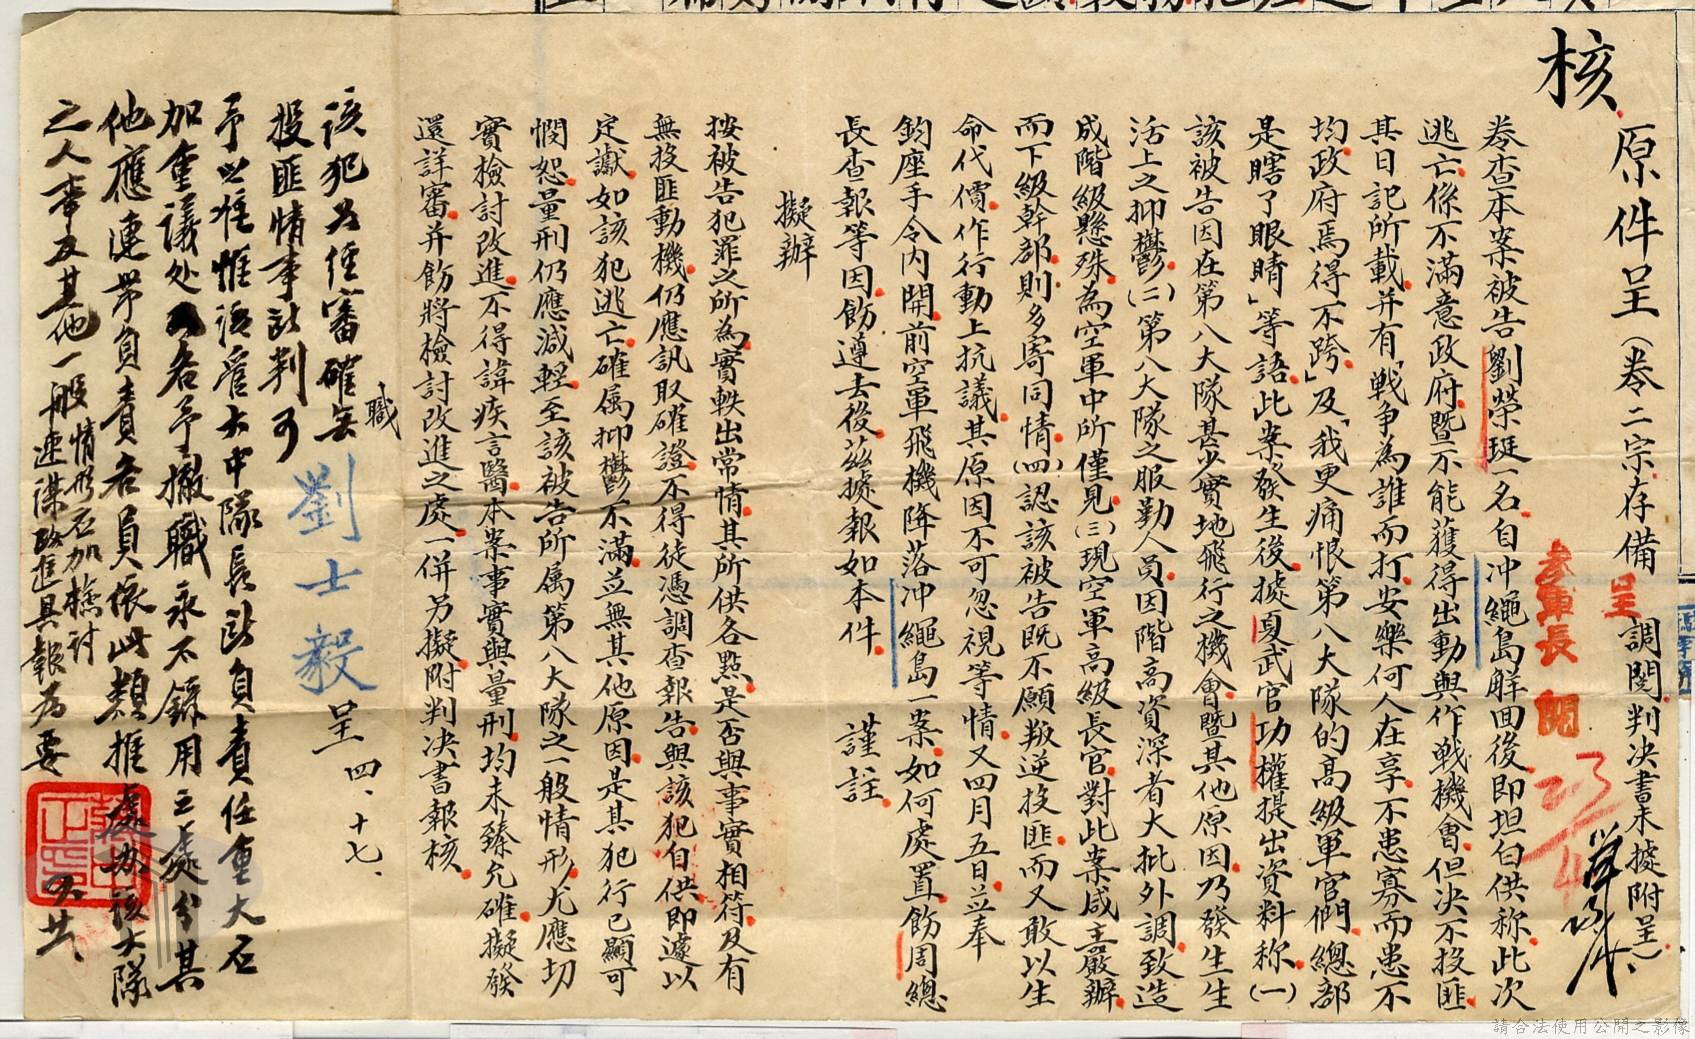 核
原件呈(卷二宗存備呈調閱判决書未據附呈)、
參軍長閱
卷查本案被告劉榮珽一名自冲繩島解回後即坦白供称此次
逃亡係不滿意政府暨不能獲得出動與作戰機會但决不投匪
其日記所載并有「戰争為誰而打安樂何人在享不患寡而患不
均政府焉得不跨」及「我更痛恨第八大隊的高級軍官們總部
是瞎了眼睛」等語此案發生後據夏武官功權提出資料称(一)
該被告因在第八大隊甚少實地飛行之機會暨其他原因乃發生生
活上之抑鬱(二)第八大隊之服勤人員因階高資深者大批外調致造
成階級懸殊為空軍中所僅見(三)現空軍高級長官對此案咸主嚴辦
而下級幹部則多寄同情(四)認該被告既不願叛逆投匪而又敢以生
命代價作行動上抗議其原因不可忽視等情又四月五日並奉
鈞座手令內開前空軍飛機降落冲繩島一案如何處置飭周總
長查報等因飭遵去後茲據報如本件　謹註
擬辦
按被告犯罪之所為實軼出常情其所供各點是否與事實相符及有
無投匪動機仍應訊取確證不得徒憑調查報告與該犯自供即遽以
定讞如該犯逃亡確属抑鬱不滿並無其他原因是其犯行已顯可
憫恕量刑仍應減輕至該被告所属第八大隊之一般情形尤應切
實檢討改進不得諱疾言醫本案事實與量刑均未臻允確擬發
還詳審并飭將檢討改進之處一併另擬附判决書報核
職
劉士毅呈 四、十七、
該犯如經審確無
投匪情事則判可
予以准惟該管大中隊長則負責任重大應
加重議处各予撤職永不錄用之處分其
他應連帶負責各員依此類推處办該大隊
之人事及其他一般情形应加檢討
速謀改進具報為要
請合法使用公開之影像